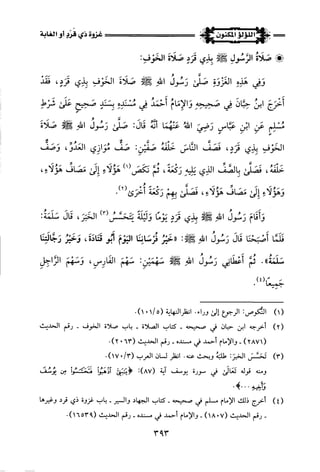 غزوة ذي قرد أو الغابة
اللؤلؤ المكنون
صلاة الرسول ﷺ بذي قرد صلاة الخوف:
وفي هذه الغزوة صلى رسول الله ﷺ صلاة الخوف بذي قرد، فقد
أخرج ابن حبان في صحيحه والإمام أحمد في مسنده بسند صحيح على شرط
مسلم عن ابن عباس رضي الله عنهما أنه قال: صلى رسول الله ﷺ صلاة
الخوف بذي قرد، فصف الناس خلفه صفين: صف موازي العدو، وصف
خلفه، فصلى بالصف الذي يليه ركعة، ثم نكص (١) هؤلاء إلى مصاف هؤلاء،
وهؤلاء إلى مصاف هؤلاء، فصلى بهم ركعة أخرى(٢).
وأقام رسول الله ﷺ بذي قرد يوما وليلة يتحسس(٣) الخبر، قال سلمة:
فلما أصبحنا قال رسول الله ﷺ: «خير فرساننا اليوم أبو قتادة، وخير رجالتنا
سلمة». ثم أعطاني رسول الله ﷺ سهمين: سهم الفارس، وسهم الراجل
جميعا(٤).
(١) النكوص: الرجوع إلى وراء. انظر النهاية (١٠١/٥).
(٢) أخرجه ابن حبان في صحيحه - كتاب الصلاة - باب صلاة الخوف - رقم الحديث
(٢٨٧١) - والإمام أحمد في مسنده - رقم الحديث (٢٠٦٣).
(٣) تحسس الخبر: طلبه وبحث عنه. انظر لسان العرب (١٧٠/٣).
ومنه قوله تعالى في سورة يوسف آية (٨٧): ﴿يبني اذهبوا فتحسسوا من يوسف
وأخيه ...﴾.
(٤) أخرج ذلك الإمام مسلم في صحيحه - كتاب الجهاد والسير - باب غزوة ذي قرد وغيرها
- رقم الحديث (١٨٠٧) - والإمام أحمد في مسنده - رقم الحديث (١٦٥٣٩).
٣٩٣